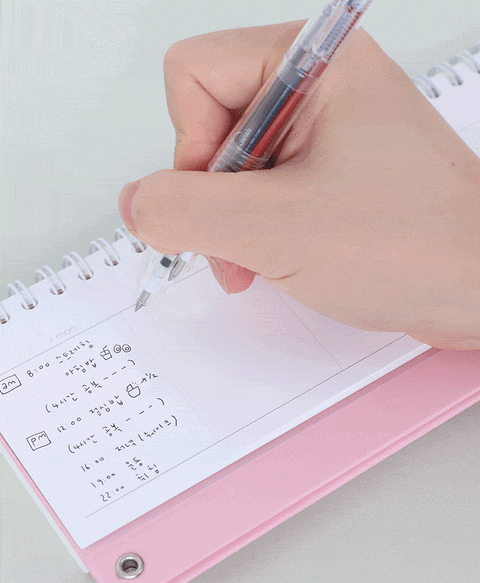 mon
am 8:00 스트레칭
아침밥
(4시간 공부 ----)
12:00 점심밥 1/2
pm (4시간 공부 ----)
16:00 저녁
19:00 운동
22:00 취침